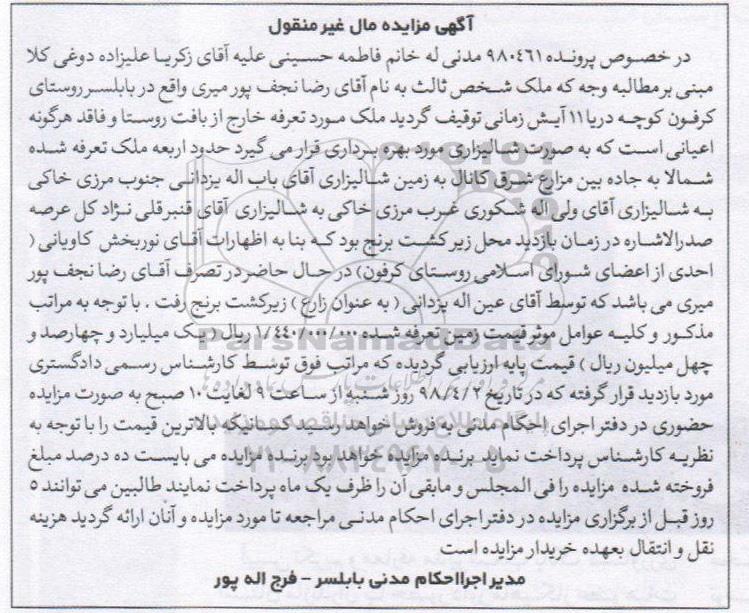 آگهی مزایده مال غیر منقول
در خصوص پرونده ۹۸۰٤٦۱ مدنی له خانم فاطمه حسینی علیه آقای زکریا علیزاده دوغی کلا
مبنی بر مطالبه وجه که ملک شخص ثالث به نام آقای رضا نجف پور میری واقع در بابلسر روستای
کرفون کوچه دریا ۱۱ آیش زمانی توقیف گردید ملک مورد تعرفه خارج از بافت روستا و فاقد هرگونه
اعیانی است که به صورت شالیزاری مورد بهره برداری قرار می گیرد حدود اربعه ملک تعرفه شده
شمالا به جاده بین مزارع شرق کانال به زمین شالیزاری آقای باب اله یزدانی جنوب مرزی خاکی
به شالیزاری آقای ولی اله شکوری غرب مرزی خاکی به شالیزاری آقای قنبر قلی نژاد کل عرصه
صدرالاشاره در زمان بازدید محل زیر کشت برنج بود که بنا به اظهارات آقای نوربخش کاویانی (
احدی از اعضای شورای اسلامی روستای کرفون) در حال حاضر در تصرف آقای رضا نجف پور
میری می باشد که توسط آقای عین اله یزدانی ( به عنوان زارع ) زیرکشت برنج رفت . با توجه به مراتب
مذکور و کلیه عوامل موثر قیمت زمین تعرفه شده ۱/٤٤۰/۰۰۰/۰۰۰ ریال ( یک میلیارد و چهارصد و
چهل میلیون ریال ) قیمت پایه ارزیابی گردیده که مراتب فوق توسط کارشناس رسمی دادگستری
مورد بازدید قرار گرفته که در تاریخ ۹۸/٤/۲ روز شنبه از ساعت ۹ لغایت ۱۰ صبح به صورت مزایده
حضوری در دفتر اجرای احکام مدنی به فروش خواهد رسید کسانیکه بالاترین قیمت را با توجه به
نظریه کارشناس پرداخت نماید برنده مزایده خواهد بود برنده مزایده می بایست ده درصد مبلغ
فروخته شده مزایده را فی المجلس و مابقی آن را ظرف یک ماه پرداخت نمایند طالبین می توانند ۵
روز قبل از برگزاری مزایده در دفتر اجرای احکام مدنی مراجعه تا مورد مزایده و آنان ارائه گردید هزینه
نقل و انتقال بعهده خریدار مزایده است
مدیر اجرا احکام مدنی بابلسر - فرج اله پور
ParsNamadData